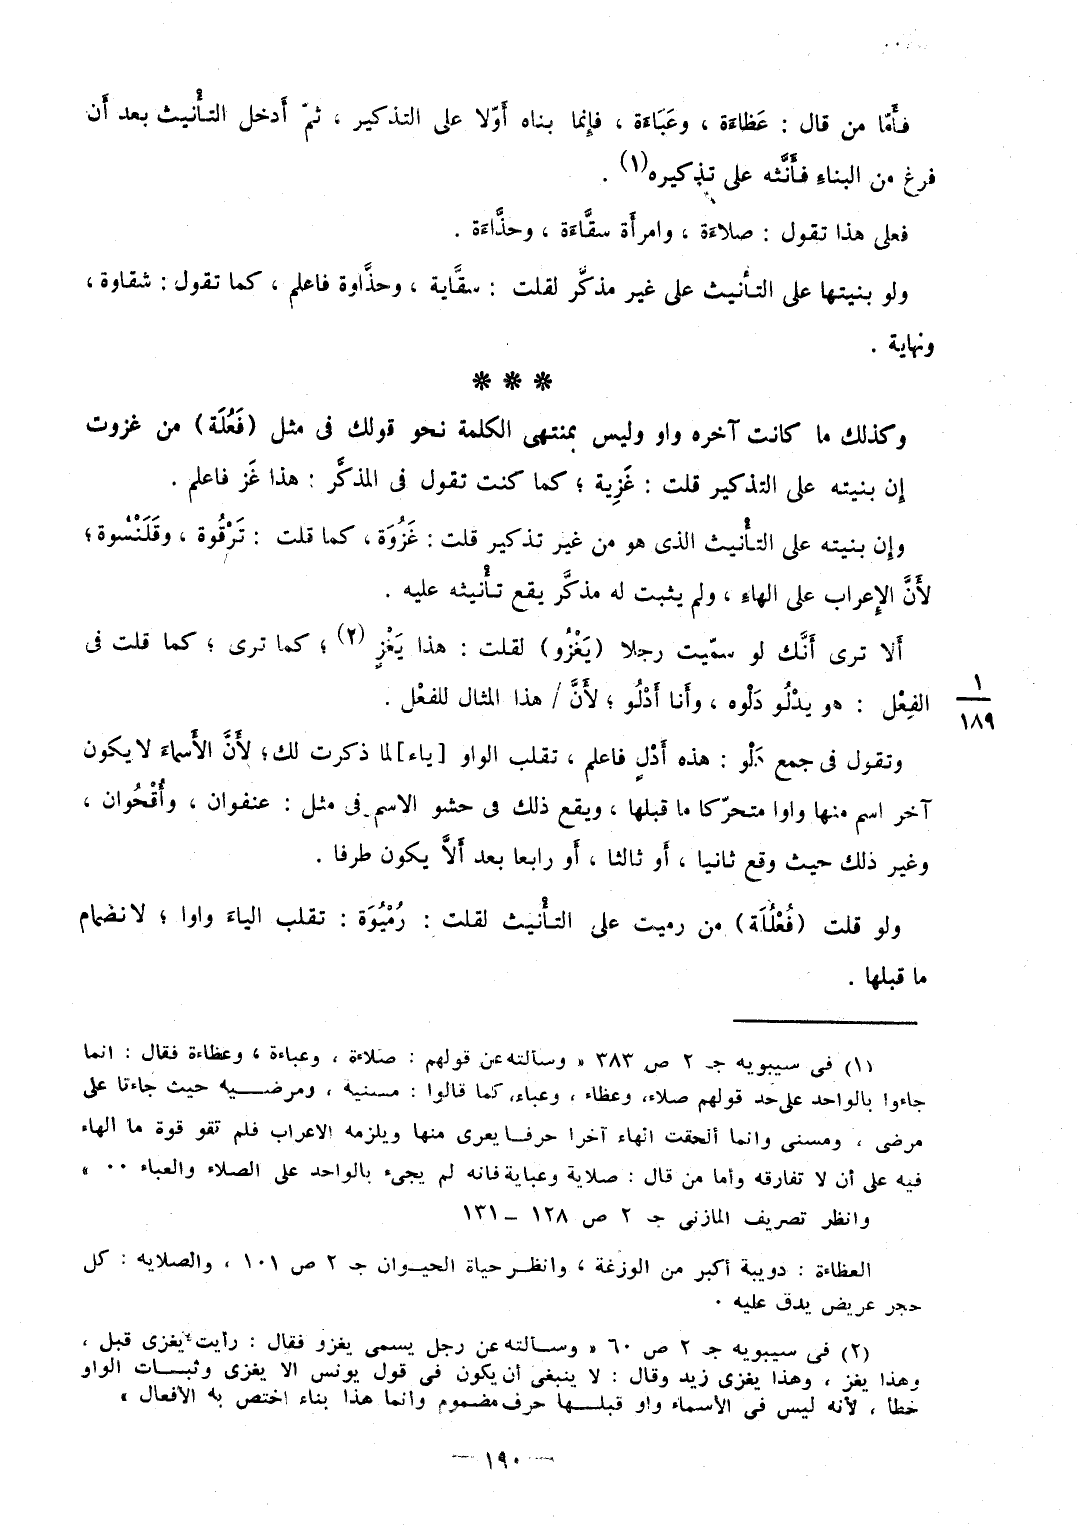 فأَمّا من قال : عَظاءَة ، وعَبَاءَة ، فإِنما بناه أَوّلا على التذكير ، ثمّ أَدخل التأْنيث بعد أَن
فرغ من البناء فأَنَّثه على تذكيره(١) .
فعلى هذا تقول : صلاءَة ، وامرأَة سقَّاءَة ، وحذَّاءَة .
ولو بنيتها على التأنيث على غير مذكَّر لقلت : سقَّاية ، وحذَّاوة فاعلم ، كما تقول : شقاوة ،
ونهاية .
* * *
وكذلك ما كانت آخره واو وليس بمنتهى الكلمة نحو قولك فى مثل (فَعُلَة) من غزوت
إن بنيته على التذكير قلت : غَزِية ؛ كما كنت تقول فى المذكَّر : هذا غَز فاعلم .
وإن بنيته على التأْنيث الذى هو من غير تذكير قلت : غَزُوَة ، كما قلت : تَرْقُوة ، وقَلَنْسُوة ؛
لأَنَّ الإِعراب على الهاء ، ولم يثبت له مذكَّر يقع تأْنيثه عليه .
أَلا ترى أَنَّك لو سمّيت رجلا (يَغْزُو) لقلت : هذا يَغْزٍ (٢) ؛ كما ترى ؛ كما قلت فى
الفِعْل : هو يدْلُو دَلْوه ، وأَنا أَدْلُو ؛ لأَنَّ / هذا المثال للفعْل .
١
١٨٩
وتقول فى جمع دَلْو : هذه أَدْلٍ فاعلم ، تقلب الواو [ياء] لما ذكرت لك ؛ لأَنَّ الأَسماءَ لا يكون
آخر اسم منها واوا متحرّكا ما قبلها ، ويقع ذلك فى حشو الاسم فى مثل : عنفوان ، وأُقْحُوان ،
وغير ذلك حيث وقع ثانيا ، أَو ثالثا ، أَو رابعا بعد أَلاَّ يكون طرفا .
ولو قلت (فُعْلُلَة) من رميت على التأْنيث لقلت : رُمْيُوَة : تقلب الياءَ واوا ؛ لانضمام
ما قبلها .
(١) فى سيبويه جـ ٢ ص ٣٨٣ « وسألته عن قولهم : صلاءة ، وعباءة ، وعظاءة فقال : انما
جاءوا بالواحد على حد قولهم صلاء، وعظاء ، وعباء، كما قالوا : مسنية ، ومرضية حيث جاءتا على
مرضى ، ومسنى وانما ألحقت الهاء آخرا حرفا يعرى منها ويلزمه الاعراب فلم تقو قوة ما الهاء
فيه على أن لا تفارقه وأما من قال : صلاية وعباية فانه لم يجىء بالواحد على الصلاء والعباء ٠٠ »
وانظر تصريف المازنى جـ ٢ ص ١٢٨ – ١٣١
العظاءة : دويبة أكبر من الوزغة ، وانظر حياة الحيوان جـ ٢ ص ١٠١ ، والصلايه : كل
حجر عريض يدق عليه ٠
(٢) فى سيبويه جـ ٢ ص ٦٠ « وسألته عن رجل يسمى يغزو فقال : رأيت يغزى قبل ،
وهذا يغز ، وهذا يغزى زيد وقال : لا ينبغى أن يكون فى قول يونس الا يغزى وثبات الواو
خطأ ، لأنه ليس فى الأسماء واو قبلها حرف مضموم وانما هذا بناء اختص به الأفعال »
— ١٩٠ —